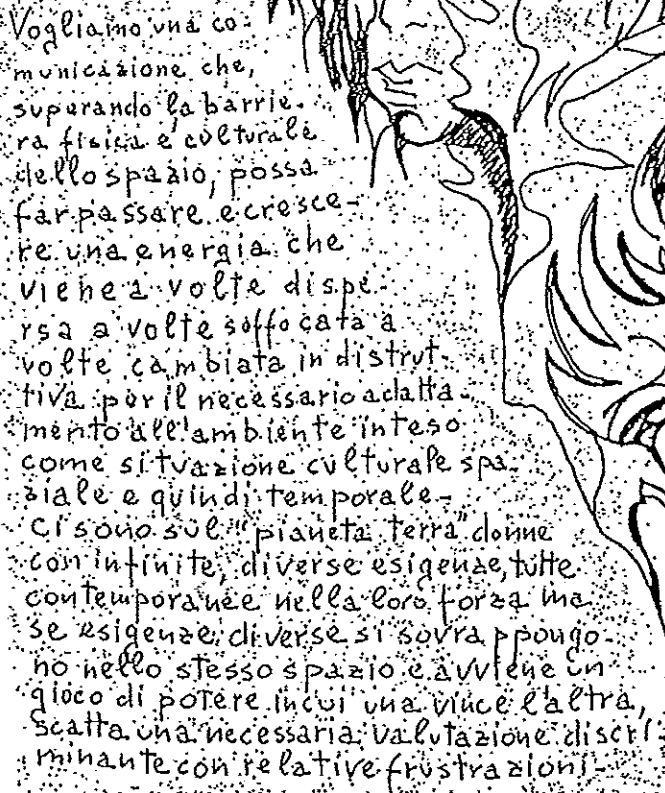 Vogliamo una co-
municazione che,
superando la barrie-
ra fisica e culturale
dello spazio, possa
far passare e cresce-
re una energia che
viene a volte dispe-
rsa a volte soffocata a
volte cambiata in distrut-
tiva per il necessario adatta-
mento all'ambiente inteso
come situazione culturale spa-
ziale e quindi temporale-
Ci sono sul "pianeta terra" donne
con infinite, diverse esigenze, tutte
contemporanee nella loro forza ma
se esigenze diverse si sovrappongo-
no nello stesso spazio e avviene un
gioco di potere in cui una vince l'altra,
scatta una necessaria valutazione discri-
minante con relative frustrazioni-